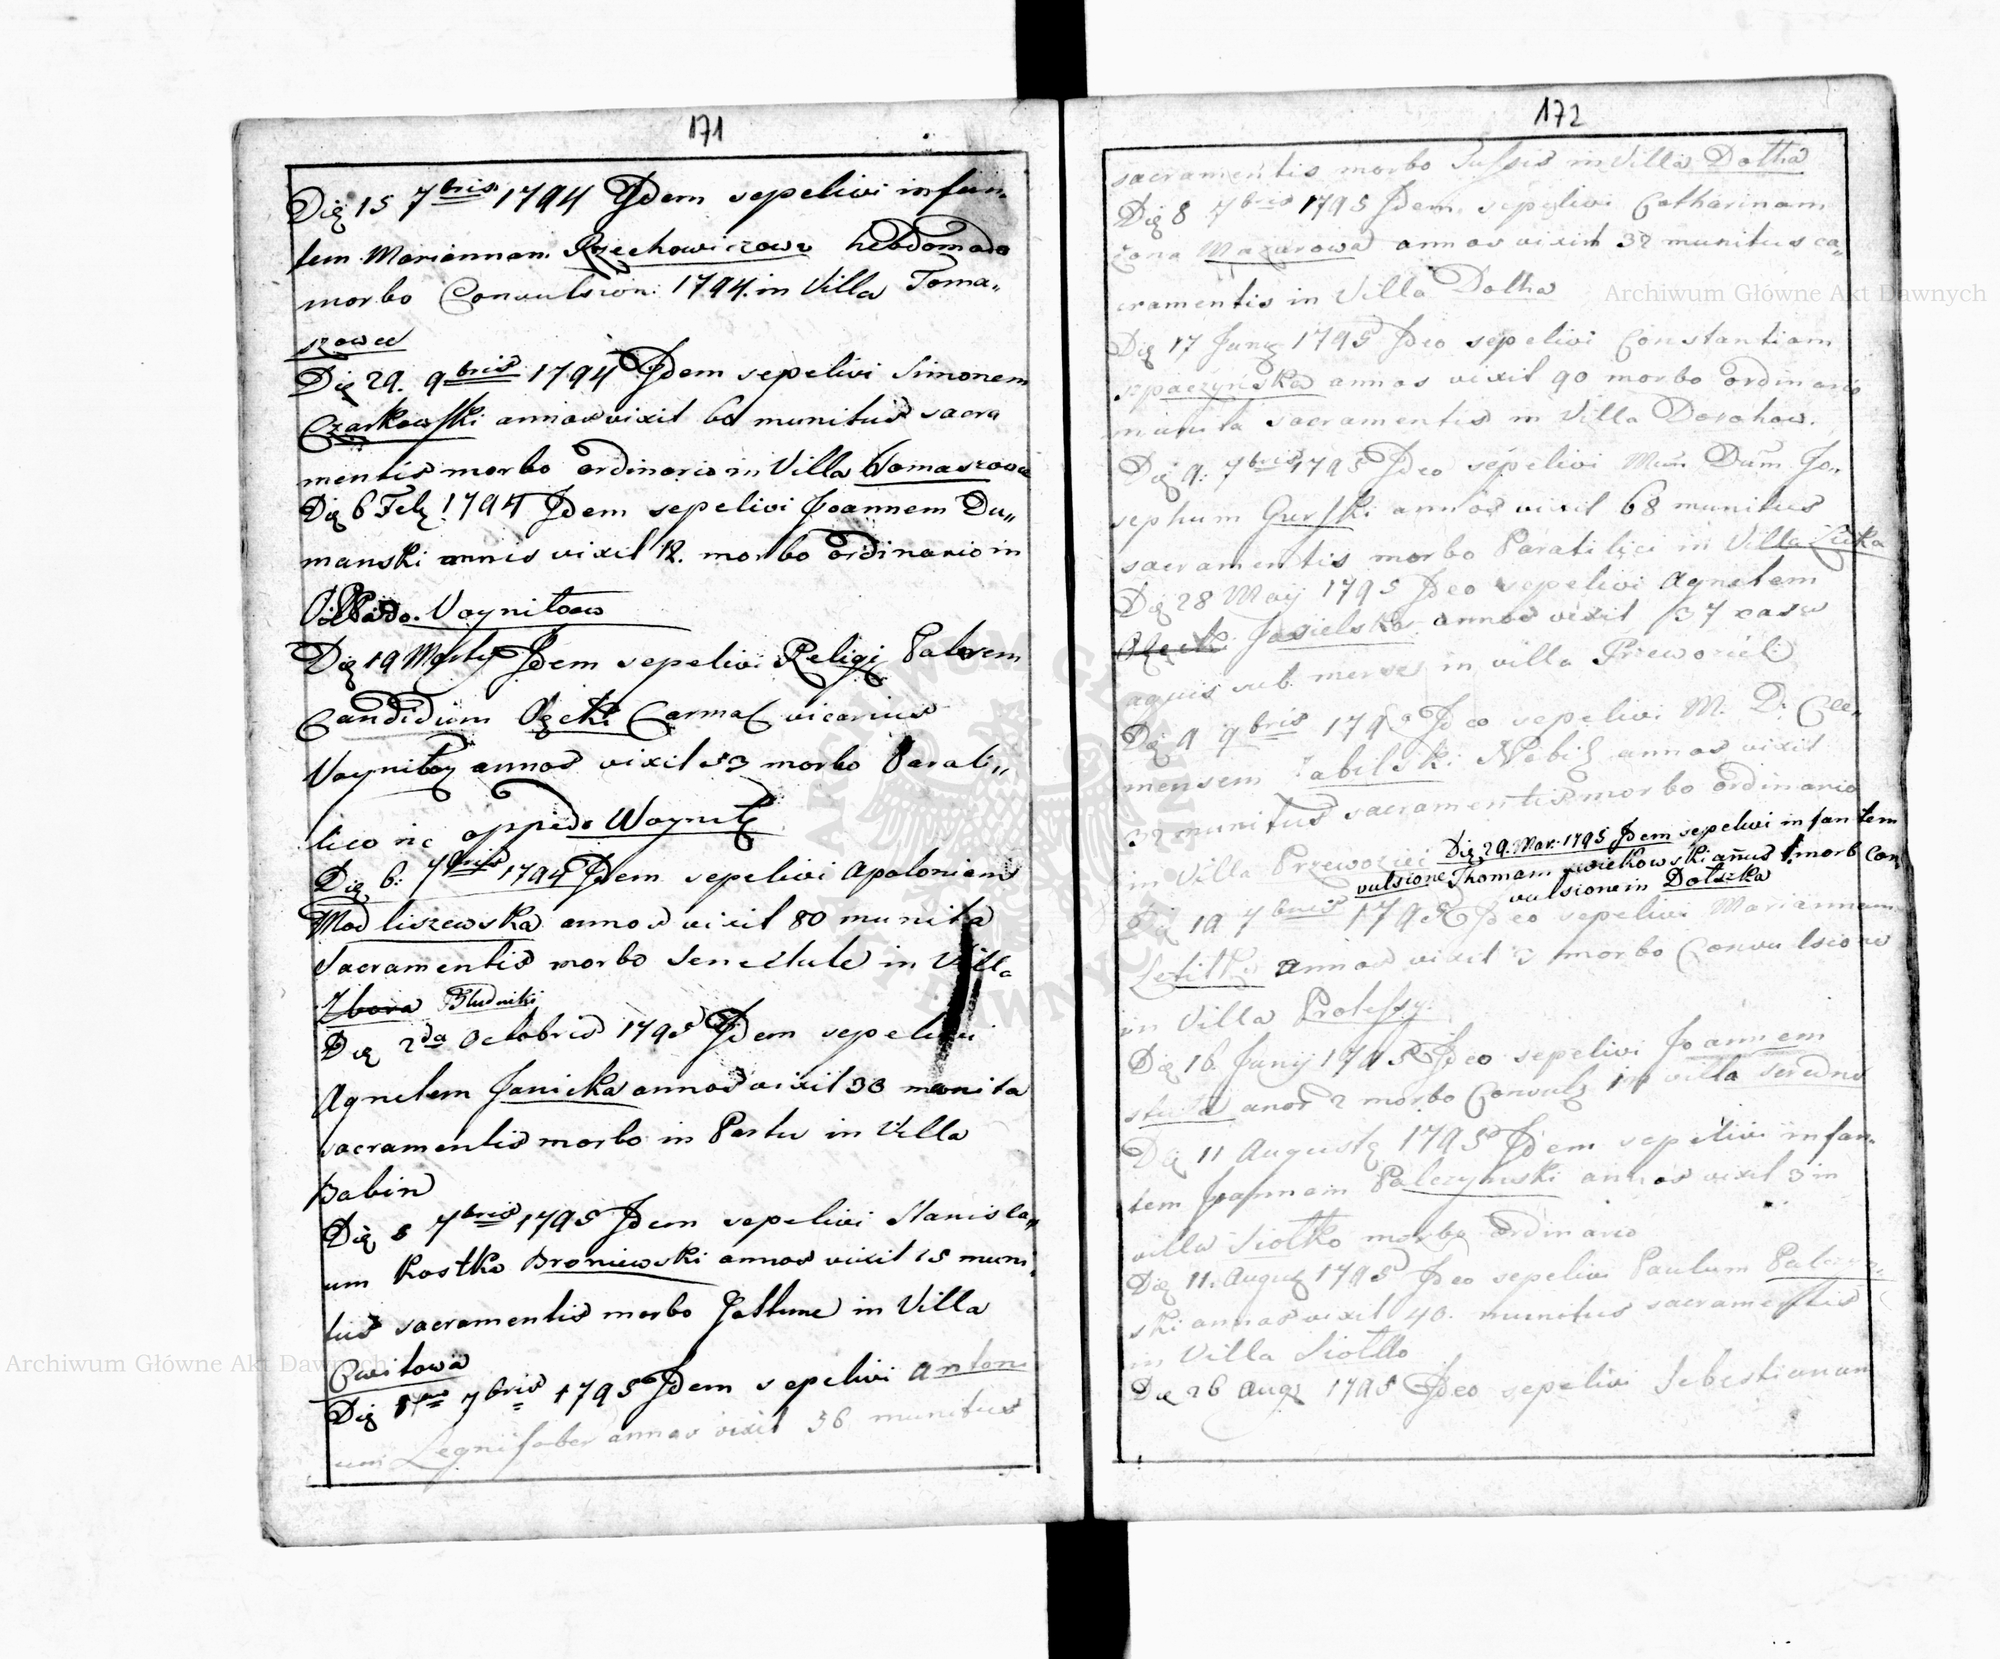 171
Die 15 7bris 1794 Idem sepelivi infan,,
tem Mariannam Rzechowiczowa hebdomada
morbo Convulsion: 1794. in Villa Toma,,
szowce
Die 29. 9bris 1794 Idem sepelivi Simonem
Czarkowski annos vixit 60 munitus sacra
mentis morbo ordinario in Villa Tomaszowce
Die 6 Feb 1794 Idem sepelivi Joannem Du,,
manski annis vixit 12. morbo ordinario in
Oppido. Voynitow
Die 19 Martij Idem sepelivi Religi Patrem
Candidum Carmel vicarius
annos vixit 53 morbo Parali,,
tico in oppido
Die 6: 7bris 1794 Idem sepelivi Apoloniam
Modliszewska annos vixit 80 munita
Sacramentis morbo Senectute in Villa
Zbora Bludniki
Die 2da Octobris 1795 Idem sepelivi
Agnetem Janicka annos vixit 33 munita
sacramentis morbo in Partu in Villa
Babin
Die 5 7bris 1795 Idem sepelivi Stanisla,,
um Kostka Broniewski annos vixit 15 muni,
tus sacramentis morbo in Villa
Cwitowa
Die 7bris 1795 Idem sepelivi Antoni
um Legnifaber annos vixit 36 munitus
172
sacramentis morbo Tussis in Villa Dolha
Die 8 7bris 1795 Idem sepelivi Catharinam
zona Mazurowa annos vixit 32 munitus sa,,
cramentis in Villa Dolha
Die 17 Juny 1795 Ideo sepelivi Constantiam
annos vixit 90 morbo ordinario
munita sacramentis in Villa Dorohow.
Die 9. 7bris 1795 Ideo sepelivi Mum Dum Jo,,
sephum Gurski annos vixit 68 munitus
sacramentis morbo in Villa
Die 28 May 1795 Ideo sepelivi Agnetem
Jasielska annos vixit 37 casu
aquis submerse in villa
Die 9 9bris 179 Ideo sepelivi M. D. Cle,,
mensem annos vixit
32 munitus sacramentis morbo ordinario
in Villa Przewoziec Die 29. Mar. 1795 Idem sepelivi infantem
vulsione Thomam annus 1. morb Con
vulsione in Dolszka
Die 19 7bris 1795 Ideo sepelivi Mariannam
annos vixit 3 morbo Convulsione
in Villa
Die 16 Juny 1795 Ideo sepelivi Joannem
anos 2 morbo Convuls in villa Seredne
Die 11 Auguste 1795 Idem sepelivi infan,
tem Joannem Palczynski annos vixit 3 in
villa Siolko morbo ordinario
Die 11. August 1795 Ideo sepelivi Paulum Palczyn,,
ski annos vixit 40. munitus sacramentis
in Villa Siolko
Die 26 Aug 1795 Ideo sepelivi Sebestianam
Archiwum Główne Akt Dawnych
Archiwum Główne Akt Dawnych